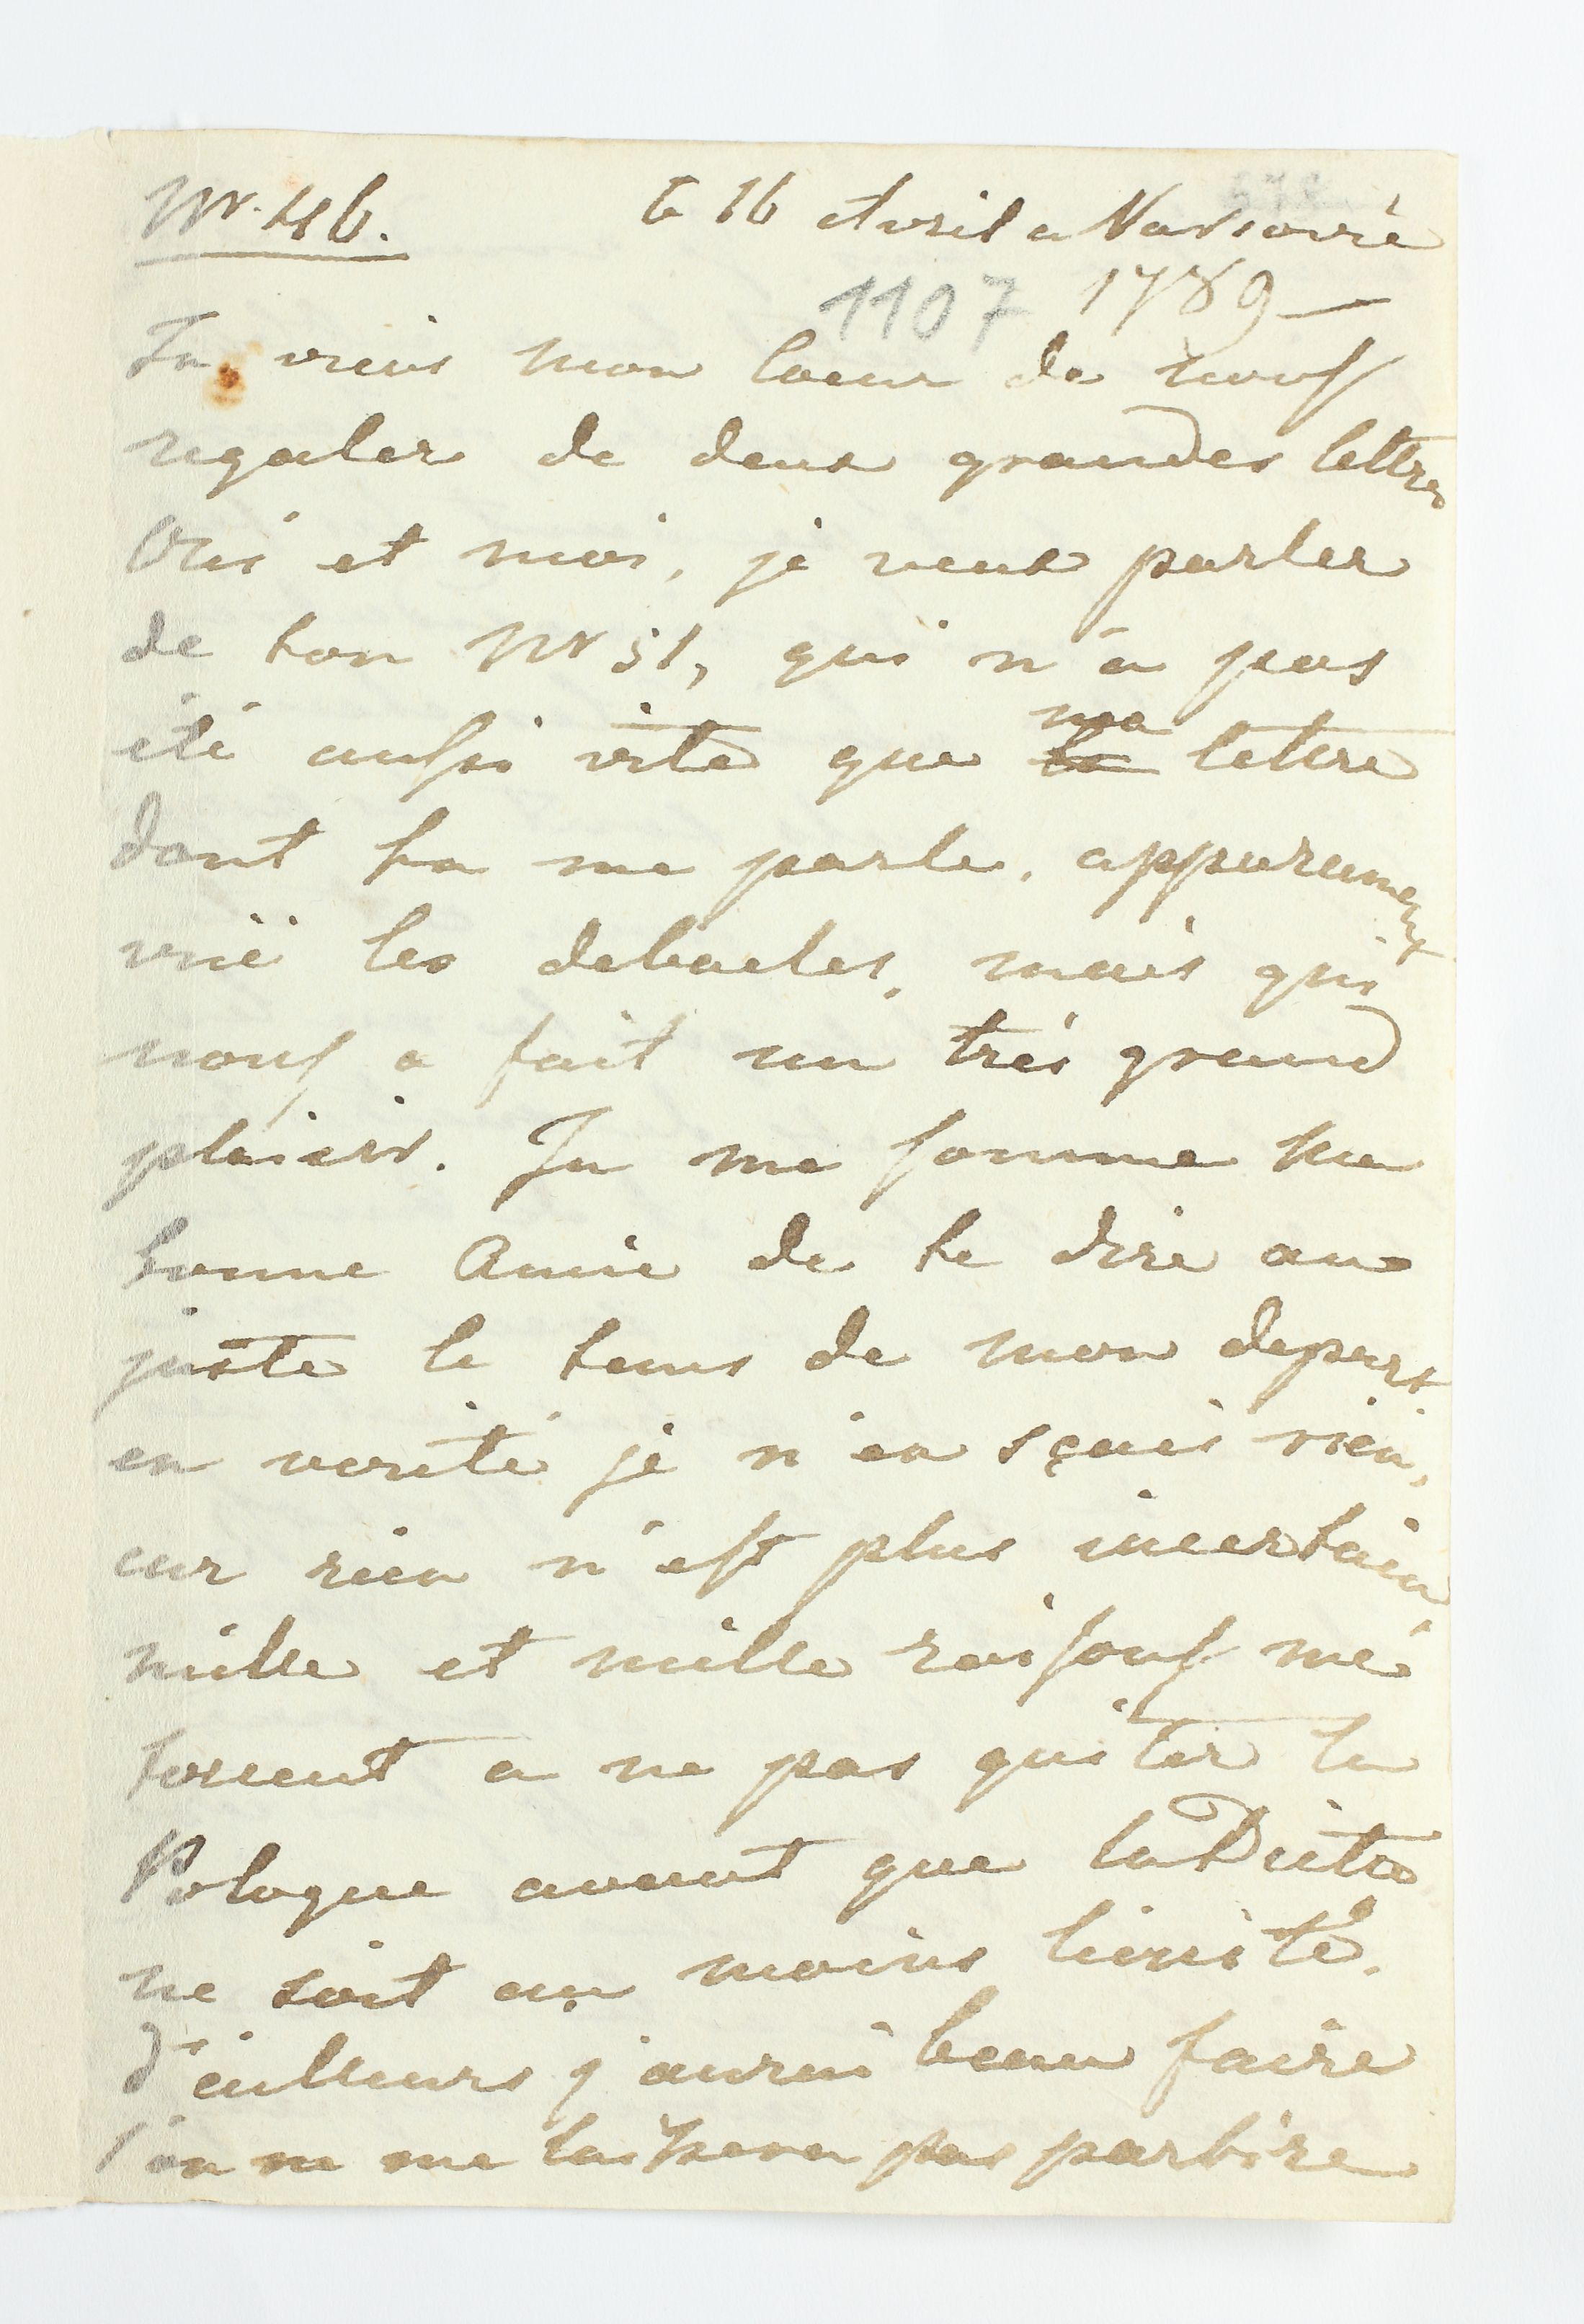 Nr. 46. le 16 Avril a Varsovie
1107 1789 —
Tu viens mon Coeur de nous
regaler de deux grandes lettres
et moi, je veux parler
de ton Nr 31, qui n'a pas
été aussi vite que ma lettre
dont tu me parle, apparement
vüe les debacles, mais qui
nous a fait un très grand
plaisir. Tu me somme ma
bonne Amie de te dire au
juste le tems de mon depart
en verité je n'en sçais rien,
car rien n'est plus incertain,
mille et mille raisons me
forcent a ne pas quiter la
Pologne avant que la Diete
ne soit au moins limité.
d'ailleurs j'aurai beau faire
l'on ne me laissera pas partire